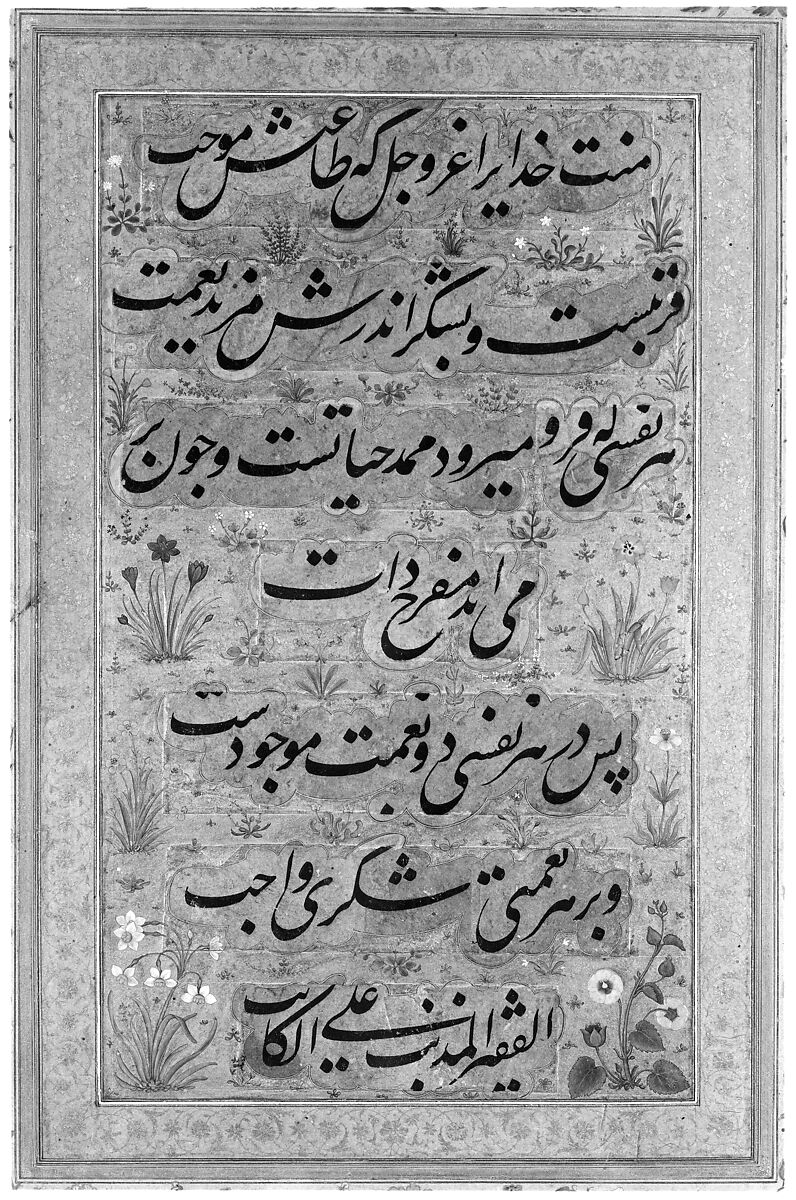 منت خدایرا عز و جل که طاعتش موجب
قربتست و بشکر اندرش مزید نعمت
هر نفسی که فرو میرود ممد حیاتست و چون بر
می اید مفرح ذات
پس در هر نفسی دو نعمت موجودست
و بر هر نعمتی شکری واجب
الفقیر المذنب علی الکاتب